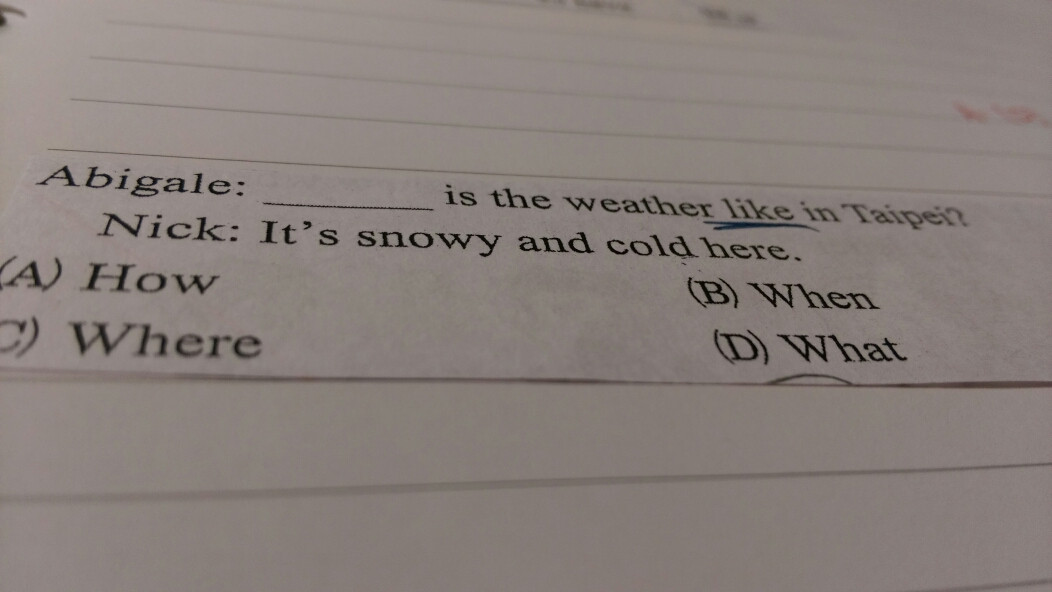 Abigale: ________ is the weather like in Taipei?
Nick: It's snowy and cold here.
(A) How (B) When
C) Where (D) What